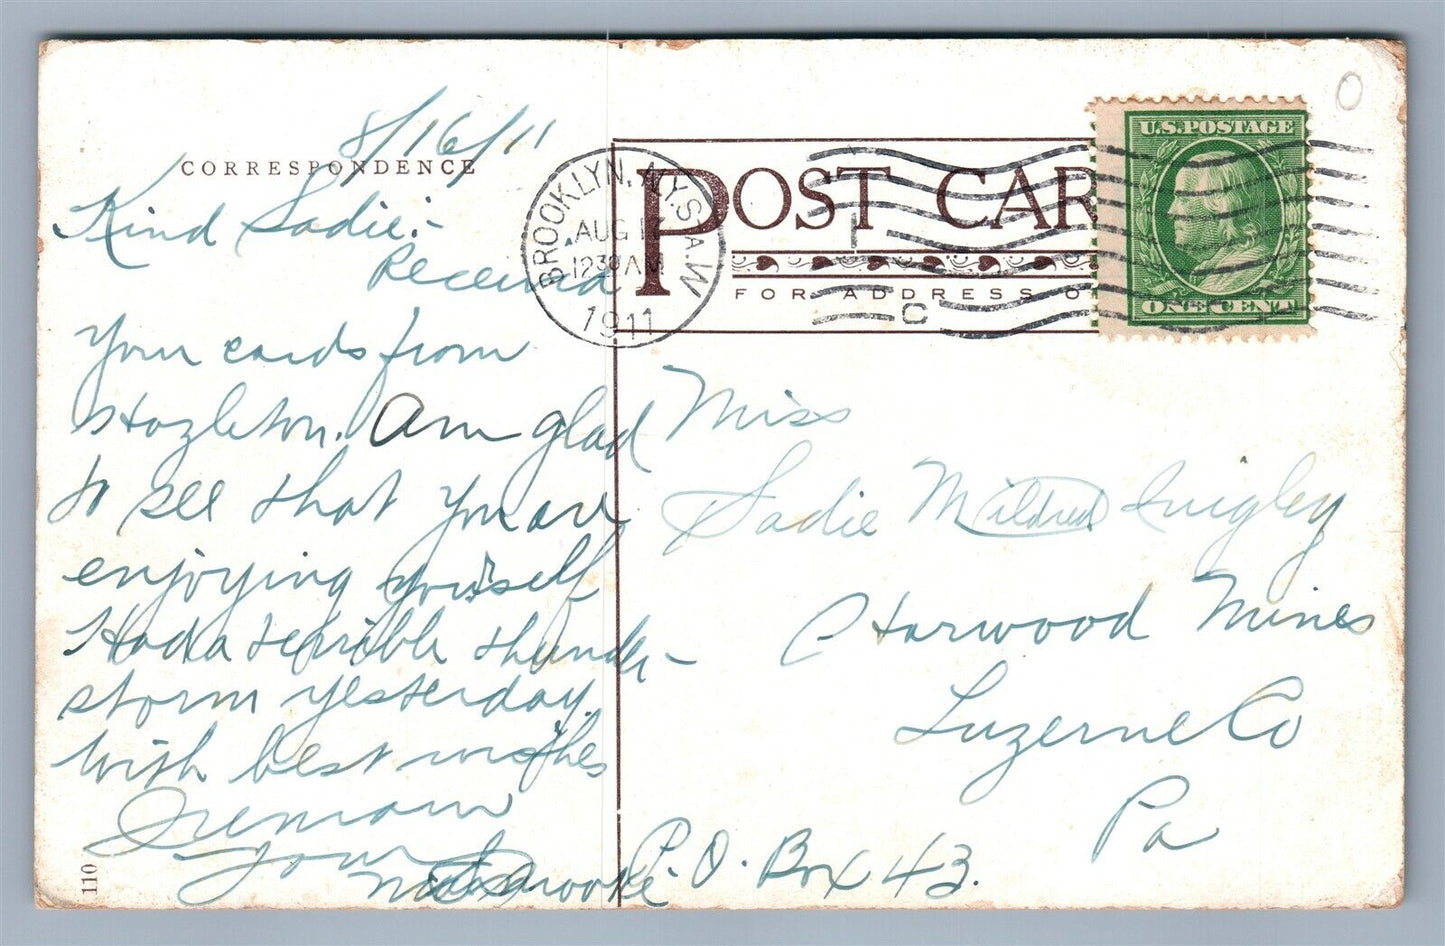 8/16/11
CORRESPONDENCE
Kind Sadie:-
Received
your cards from
Hazleton. Am glad
to see that you are
enjoying yourself
Had a terrible thunder-
storm yesterday.
With best wishes
I remain
Your
BROOKLYN, N.Y. STA. W
AUG
12 30 AM
1911
C
POST CAR
FOR ADDRESS O
U.S. POSTAGE
ONE CENT
Miss
Sadie Mildred Quigley
Harwood Mines
Luzerne Co
Pa
P.O. Box 43.
110
0